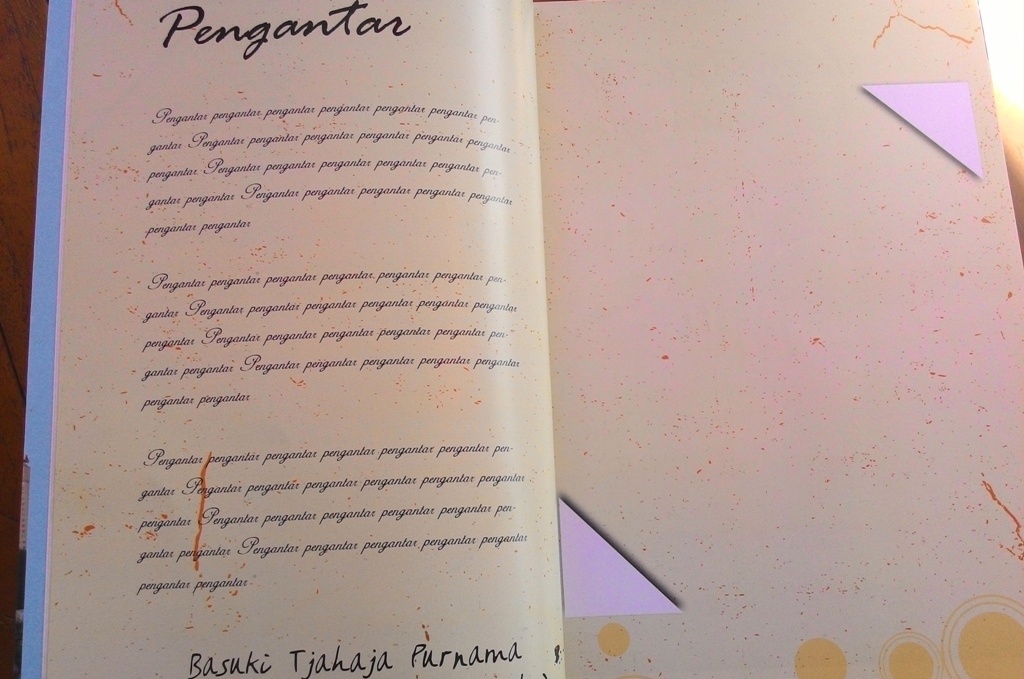 Pengantar
Pengantar pengantar pengantar pengantar pengantar pengantar pen-
gantar Pengantar pengantar pengantar pengantar pengantar pengantar
pengantar Pengantar pengantar pengantar pengantar pengantar pen-
gantar pengantar Pengantar pengantar pengantar pengantar pengantar
pengantar pengantar
Pengantar pengantar pengantar pengantar pengantar pengantar pen-
gantar Pengantar pengantar pengantar pengantar pengantar pengantar
pengantar Pengantar pengantar pengantar pengantar pengantar pen-
gantar pengantar Pengantar pengantar pengantar pengantar pengantar
pengantar pengantar
Pengantar pengantar pengantar pengantar pengantar pengantar pen-
gantar Pengantar pengantar pengantar pengantar pengantar pengantar
pengantar Pengantar pengantar pengantar pengantar pengantar pen-
gantar pengantar Pengantar pengantar pengantar pengantar pengantar
pengantar pengantar
Basuki Tjahaja Purnama